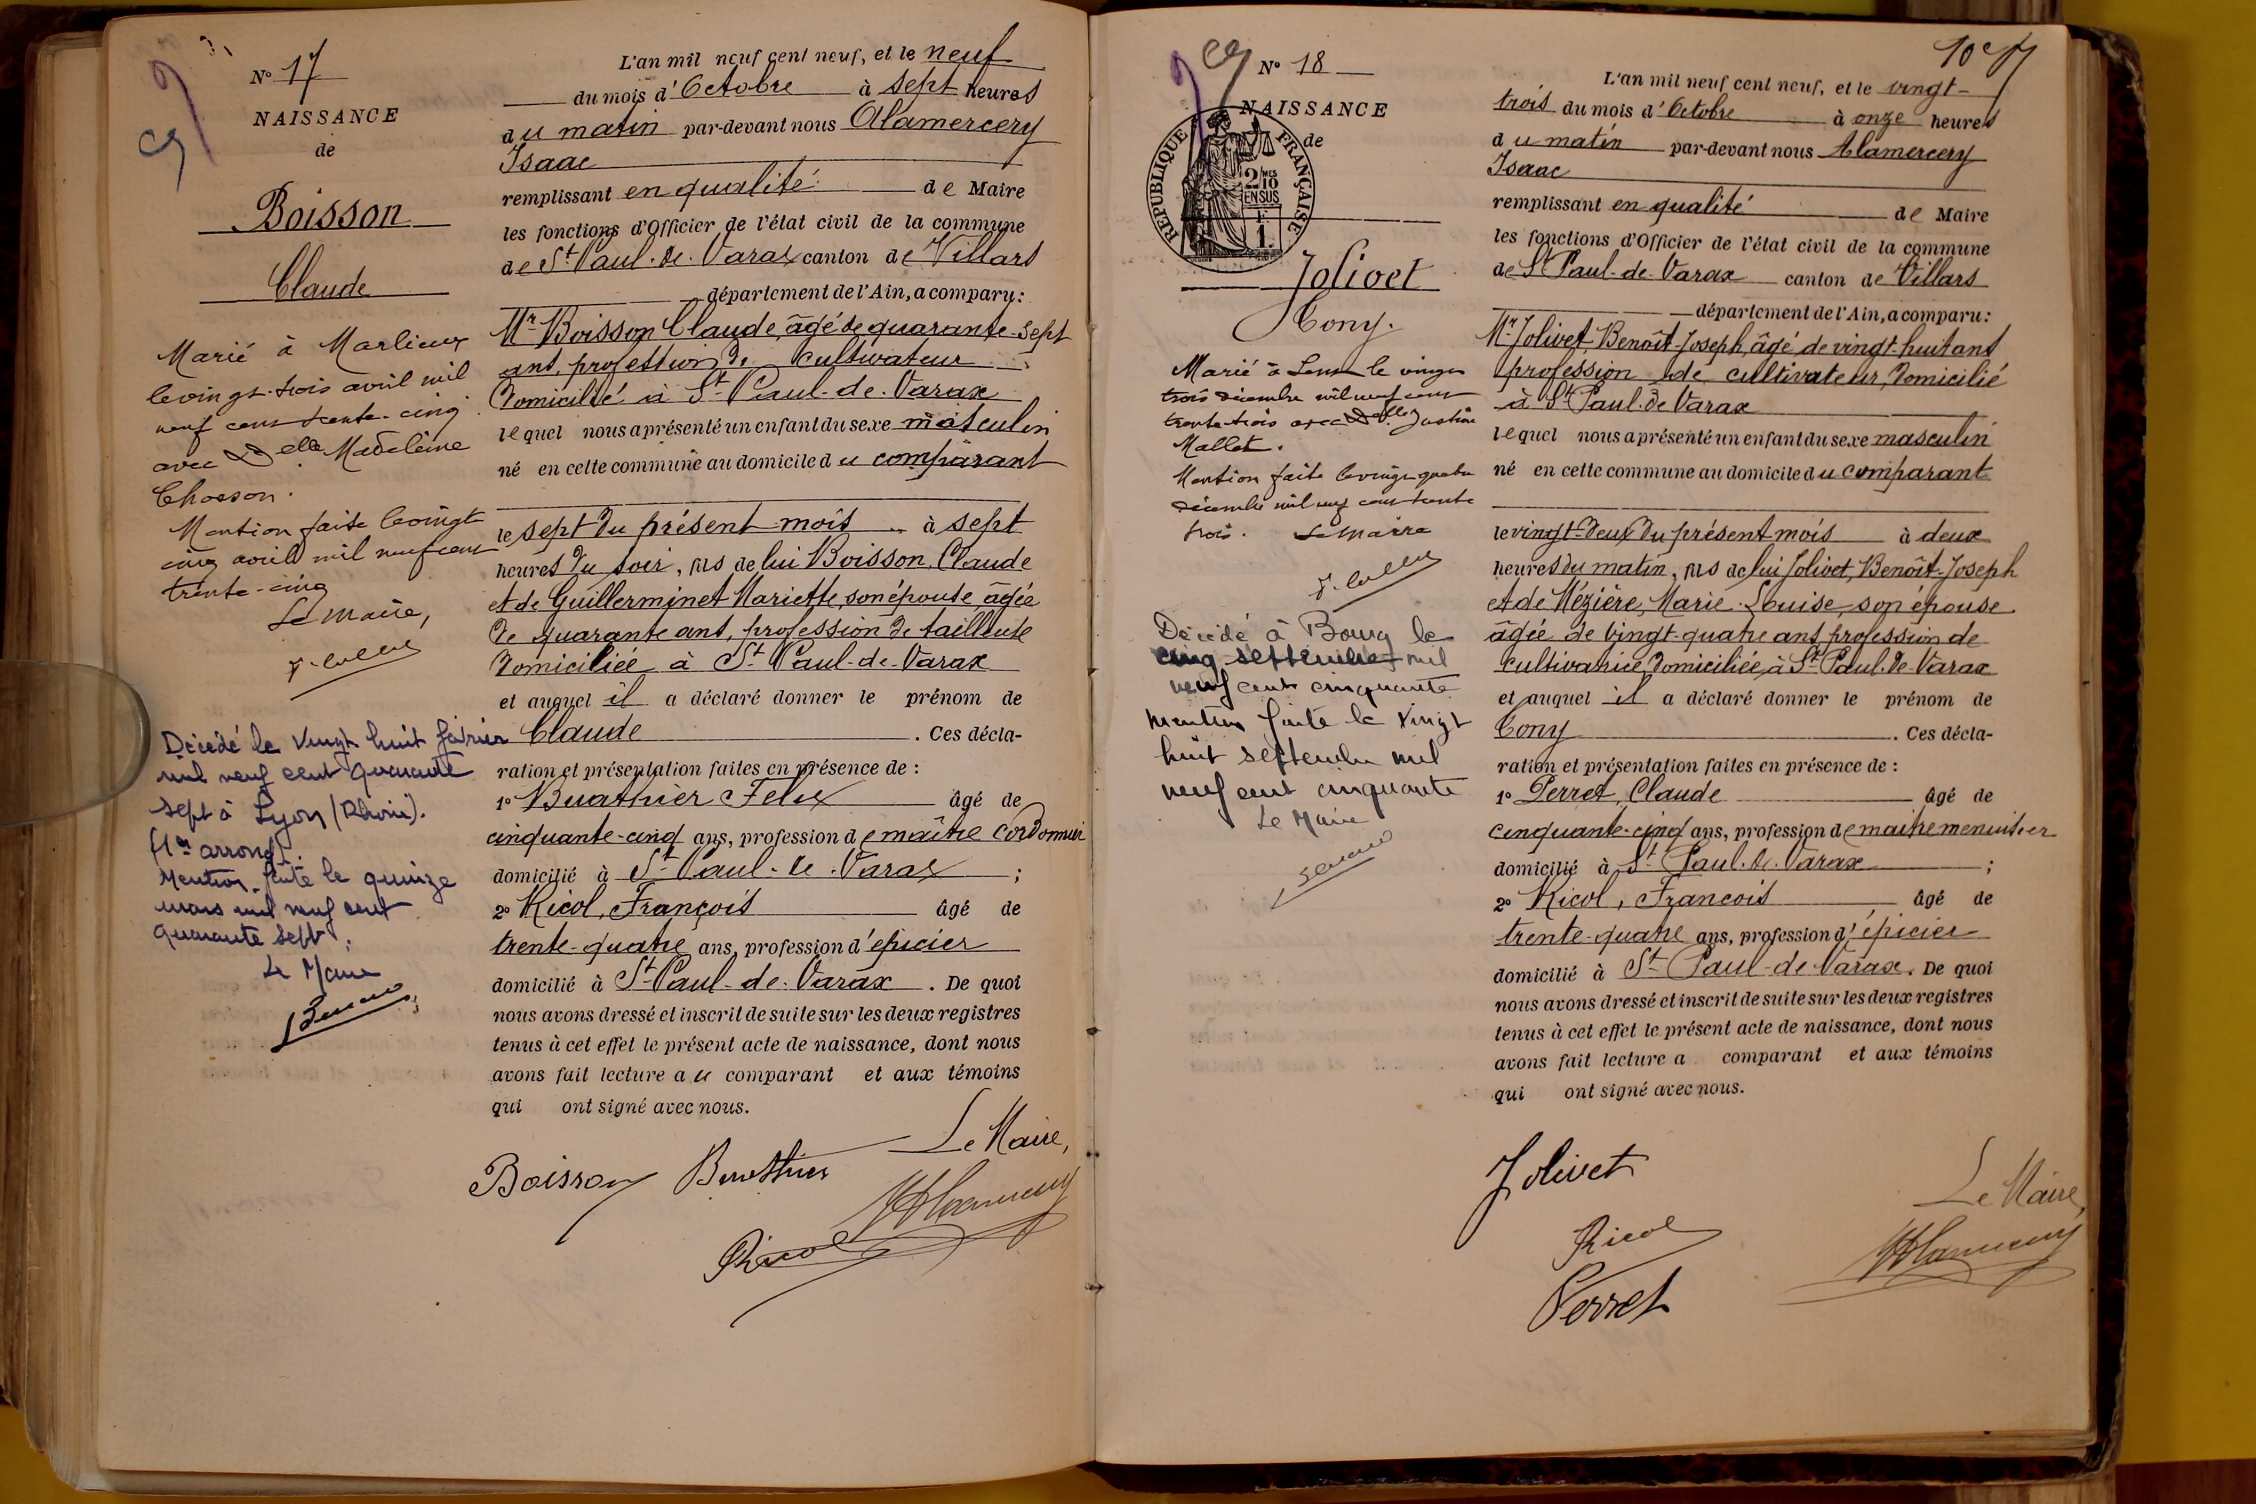 N° 17
NAISSANCE
de
Boisson
Claude
Marié à Marlieux
le vingt-trois avril mil
neuf cent trente-cinq
avec Delle Madeleine
Chosson.
Mention faite le vingt
cinq avril mil neuf cent
trente-cinq
Le Maire,
Décédé le vingt huit février
mil neuf cent quarante
sept à Lyon (Rhône).
(1er arrond).
Mention faite le quinze
mars mil neuf cent
quarante sept.
Le Maire
L'an mil neuf cent neuf, et le neuf
du mois d'Octobre à sept heures
du matin par-devant nous Alamercery
Isaac
remplissant en qualité de Maire
les fonctions d'Officier de l'état civil de la commune
de St Paul-de-Varax canton de Villars
département de l'Ain, a comparu:
Mr Boisson Claude, âgé de quarante-sept
ans, profession de cultivateur
domicilié à St Paul-de-Varax
lequel nous a présenté un enfant du sexe masculin
né en cette commune au domicile du comparant
le sept du présent mois à sept
heures du soir, fils de lui Boisson, Claude
et de Guillerminet Mariette, son épouse, âgée
de quarante ans, profession de tailleuse
domiciliée à St Paul-de-Varax
et auquel il a déclaré donner le prénom de
Claude . Ces décla-
ration et présentation faites en présence de :
1° Buathier Félix âgé de
cinquante-cinq ans, profession de maître cordonnier
domicilié à St Paul-de-Varax ;
2° Ricol, François âgé de
trente-quatre ans, profession d'épicier
domicilié à St Paul-de-Varax . De quoi
nous avons dressé et inscrit de suite sur les deux registres
tenus à cet effet le présent acte de naissance, dont nous
avons fait lecture au comparant et aux témoins
qui ont signé avec nous.
Le Maire,
Boisson Buathier
Alamercery
Ricol
10
N° 18
NAISSANCE
de
REPUBLIQUE FRANÇAISE
2/10 MES
EN SUS
Jolivet
Tony.
Marié à Lent le vingt
trois décembre mil neuf cent
trente trois avec Delle Justine
Mallet.
Mention faite le vingt quatre
décembre mil neuf cent trente
trois. Le Maire
Décédé à Bourg le
cinq septembre mil
neuf cent cinquante
mention faite le vingt
huit septembre mil
neuf cent cinquante
Le Maire
L'an mil neuf cent neuf, et le vingt-
trois du mois d'Octobre à onze heures
du matin par-devant nous Alamercery
Isaac
remplissant en qualité de Maire
les fonctions d'Officier de l'état civil de la commune
de St Paul-de-Varax canton de Villars
département de l'Ain, a comparu:
Mr Jolivet, Benoît-Joseph, âgé de vingt-huit ans
profession de cultivateur, domicilié
à St Paul-de Varax
lequel nous a présenté un enfant du sexe masculin
né en cette commune au domicile du comparant
le vingt-deux du présent mois à deux
heures du matin, fils de lui Jolivet, Benoît-Joseph
et de Mézière, Marie-Louise, son épouse
âgée de vingt-quatre ans, profession de
cultivatrice, domiciliée à St Paul-de-Varax
et auquel il a déclaré donner le prénom de
Tony . Ces décla-
ration et présentation faites en présence de :
1° Perret, Claude âgé de
cinquante-cinq ans, profession de maître menuisier
domicilié à St Paul-de-Varax ;
2° Ricol, François âgé de
trente-quatre ans, profession d'épicier
domicilié à St Paul-de-Varax . De quoi
nous avons dressé et inscrit de suite sur les deux registres
tenus à cet effet le présent acte de naissance, dont nous
avons fait lecture a comparant et aux témoins
qui ont signé avec nous.
Jolivet
Le Maire,
Ricol
Alamercery
Perret